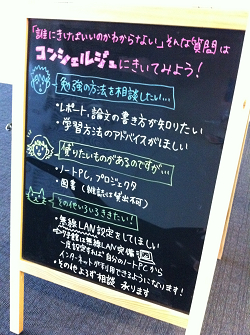 「誰にきけばいいのかわからない」そんな質問は
コンシェルジュにきいてみよう!
勉強の方法を相談したい…
・レポート、論文の書き方が知りたい
・学習方法のアドバイスがほしい
借りたいものがあるのですが…
・ノートPC、プロジェクタ
・図書(雑誌は貸出不可)
その他いろいろききたい!
・無線LAN設定をしてほしい
図書館は無線LAN完備
一度設定すれば自分のノートPCから
インターネットが利用できるようになります!
・その他よろず相談 承ります